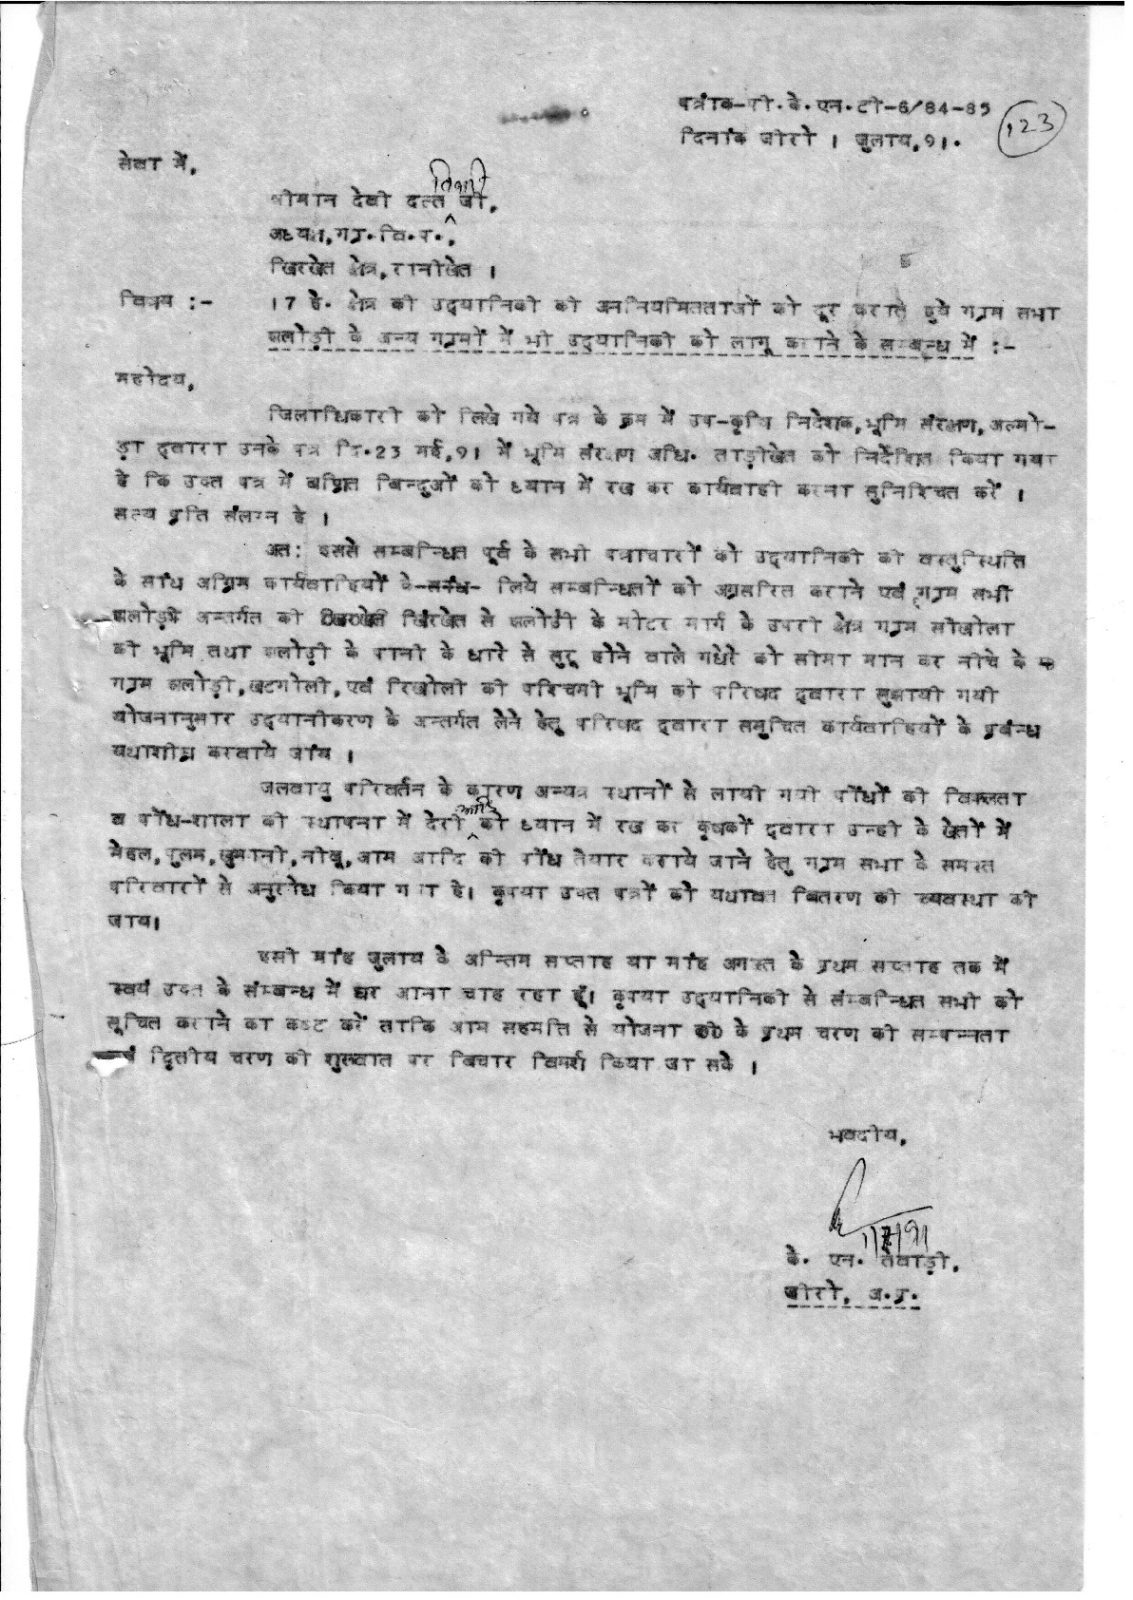 पत्रांक-पी.के.एन.टी-6/84-85
123
दिनांक जीरो । जुलाय,91.
सेवा में,
तिवारी
श्रीमान देवी दत्त जी,
अध्यक्ष,ग्रा.वि.प.,
खिरखेत क्षेत्र,रानीखेत ।
विषय :- 17 हे. क्षेत्र की उद्यानिकी की अननियमितताओं को दूर कराते हुये ग्राम सभा
जलोड़ी के अन्य ग्रामों में भी उद्यानिकी को लागू कराने के सम्बन्ध में :-
महोदय,
जिलाधिकारी को लिखे गये पत्र के क्रम में उप-कृषि निदेशक,भूमि संरक्षण,अल्मो-
ड़ा द्वारा उनके पत्र दि.23 मई,91 में भूमि संरक्षण अधि. ताड़ीखेत को निर्देशित किया गया
है कि उक्त पत्र में वर्णित बिन्दुओं को ध्यान में रख कर कार्यवाही करना सुनिश्चित करें ।
सत्य प्रति संलग्न है ।
अत: इससे सम्बन्धित पूर्व के सभी पत्राचारों को उद्यानिकी की वस्तुस्थिति
के सांथ अग्रिम कार्यवाहियों के लिये सम्बन्धितों को अग्रसरित कराने एवं ग्राम सभा
जलोड़ी अन्तर्गत की खिरखेत से जलोड़ी के मोटर मार्ग के उपरी क्षेत्र ग्राम सौखोला
की भूमि तथा जलोड़ी के पानी के धारे से सुरू होने वाले गधेरे को सीमा मान कर नीचे के
ग्राम जलोड़ी,खटगोली,एवं रिखोली की पश्चिमी भूमि को परिषद द्वारा सुझायी गयी
योजनानुसार उद्यानीकरण के अन्तर्गत लेने हेतु परिषद द्वारा समुचित कार्यवाहियों के प्रबन्ध
यथाशीघ्र करवाये जांय ।
जलवायु परिवर्तन के कारण अन्यत्र स्थानों से लायी गयी पौंधों की विफलता
व पौंध-शाला की स्थापना में देरी आदि को ध्यान में रख कर कृषकों द्वारा उन्ही के खेतों में
मेहल,पुलम,खुमानी,नीबू,आम आदि की पौंध तैयार कराये जाने हेतु ग्राम सभा के समस्त
परिवारों से अनुरोध किया गया है। कृपया उक्त पत्रों को यथावत वितरण की व्यवस्था की
जाय।
इसी मांह जुलाय के अन्तिम सप्ताह या मांह अगस्त के प्रथम सप्ताह तक में
स्वयं उक्त के संम्बन्ध में घर आना चाह रहा हूँ। कृपया उद्यानिकी से संम्बन्धित सभी को
सूचित कराने का कष्ट करें ताकि आम सहमति से योजना के प्रथम चरण की सम्पन्नता
द्वितीय चरण की शुरूवात पर विचार विमर्श किया जा सके ।
भवदीय,
के. एन. तेवाड़ी,
जीरो, अ.प्र.